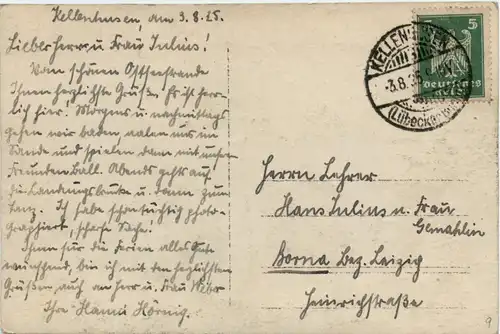 Kellenhusen am 3.8.25.
Lieber Herr u. Frau Julius!
Vom schönen Ostseestrande
Ihnen herzlichste Grüße. Es ist herr-
lich hier. Morgens u. nachmittags
gehen wir baden, aalen uns im
Sande und spielen dann mit unsern
Freunden Ball. Abends gehts auf
die Landungsbrücke u. dann zum
Tanz. Ich habe schon tüchtig photo-
graphiert, scharfe Sache!
Ihnen für die Ferien alles Gute
wünschend, bin ich mit den herzlichsten
Grüßen auch an Herr u. Frau Weber
Ihre Hanni Hörnig.
KELLENHUSEN
-3.8.25
(Lübecker
5 5
Deutsches
Reich
Herrn Lehrer
Hans Julius u. Frau
Gemahlin
Borna Bez. Leipzig
Heinrichstraße
9